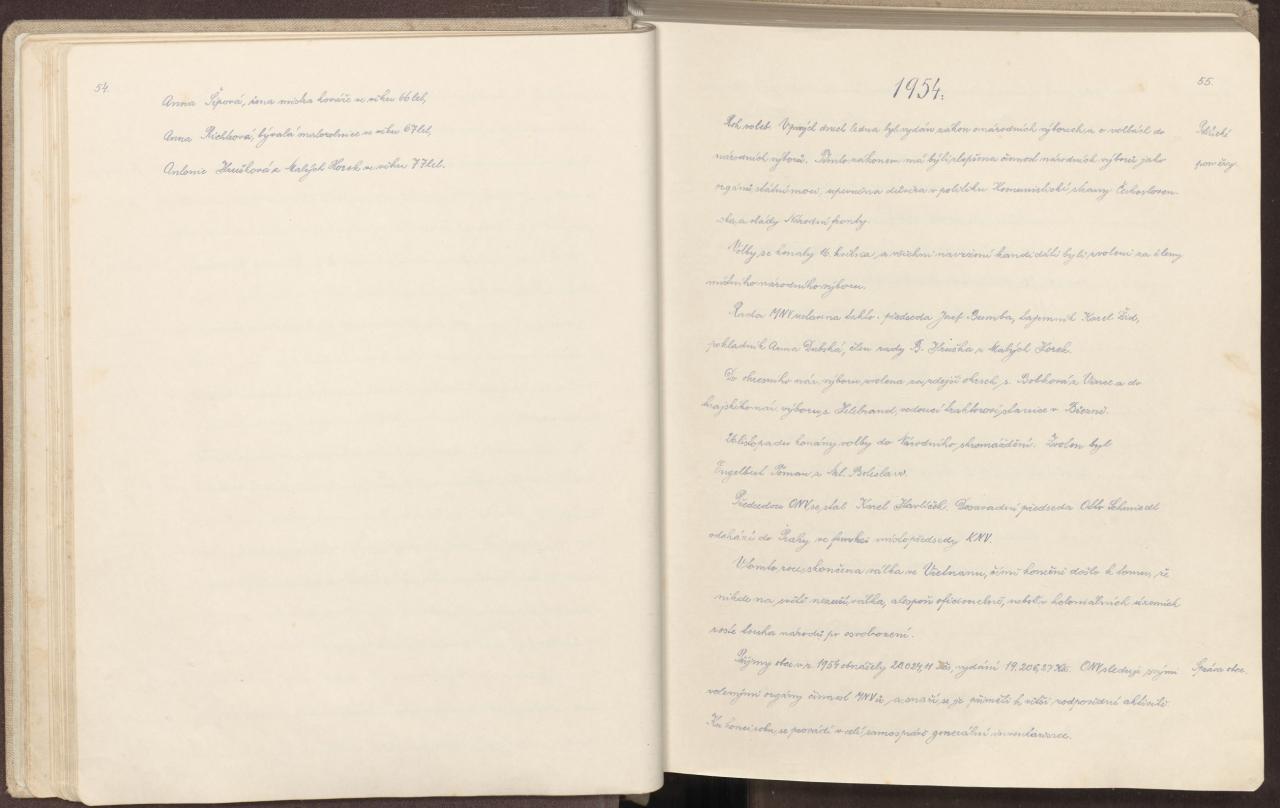 54.
Anna Šípová, žena mistra kováře ve věku 66 let,
Anna Říchková, bývalá malorolnice ve věku 67 let,
Antonie Hrušková z Malých Horek ve věku 77 let.
55.
1954.
Rok voleb. V prvých dnech ledna byl vydán zákon o národních výborech a o volbách do
národních výborů. Tímto zákonem má býti zlepšena činnost národních výborů jako
orgánů státní moci, upevněna důvěra v politiku Komunistické strany Českosloven-
ska a vlády Národní fronty.
Politické
poměry.
Volby se konaly 16. května a všichni navržení kandidáti byli zvoleni za členy
místního národního výboru.
Rada MNV zvolena takto: předseda Josef Bumba, tajemník Karel Žid,
pokladník Anna Dubská, člen rady B. Hruška z Malých Horek.
Do okresního nár. výboru zvolena za zdejší okrsek s. Bobková z Vinec a do
krajského nár. výboru s. Hilebrand, vedoucí traktorové stanice v Březně.
26. listopadu konány volby do Národního shromáždění. Zvolen byl
Engelbert Toman z Ml. Boleslavi.
Předsedou ONV se stal Karel Havlíček. Dosavadní předseda Otto Schmiedl
odchází do Prahy ve funkci místopředsedy KNV.
V tomto roce skončena válka ve Vietnamu, čímž konečně došlo k tomu, že
nikde na světě nezuří válka, alespoň oficielně, neboť v koloniálních územích
roste touha národů po osvobození.
Příjmy obce v r. 1954 obnášely 20.024,11 Kčs, vydání 19.206,27 Kčs. ONV sleduje svými
Správa obce.
volenými orgány činnost MNVů a snaží se je přiměti k větší zodpovědné aktivitě.
Ku konci roku se provádí v celé samosprávě generální inventarisace.